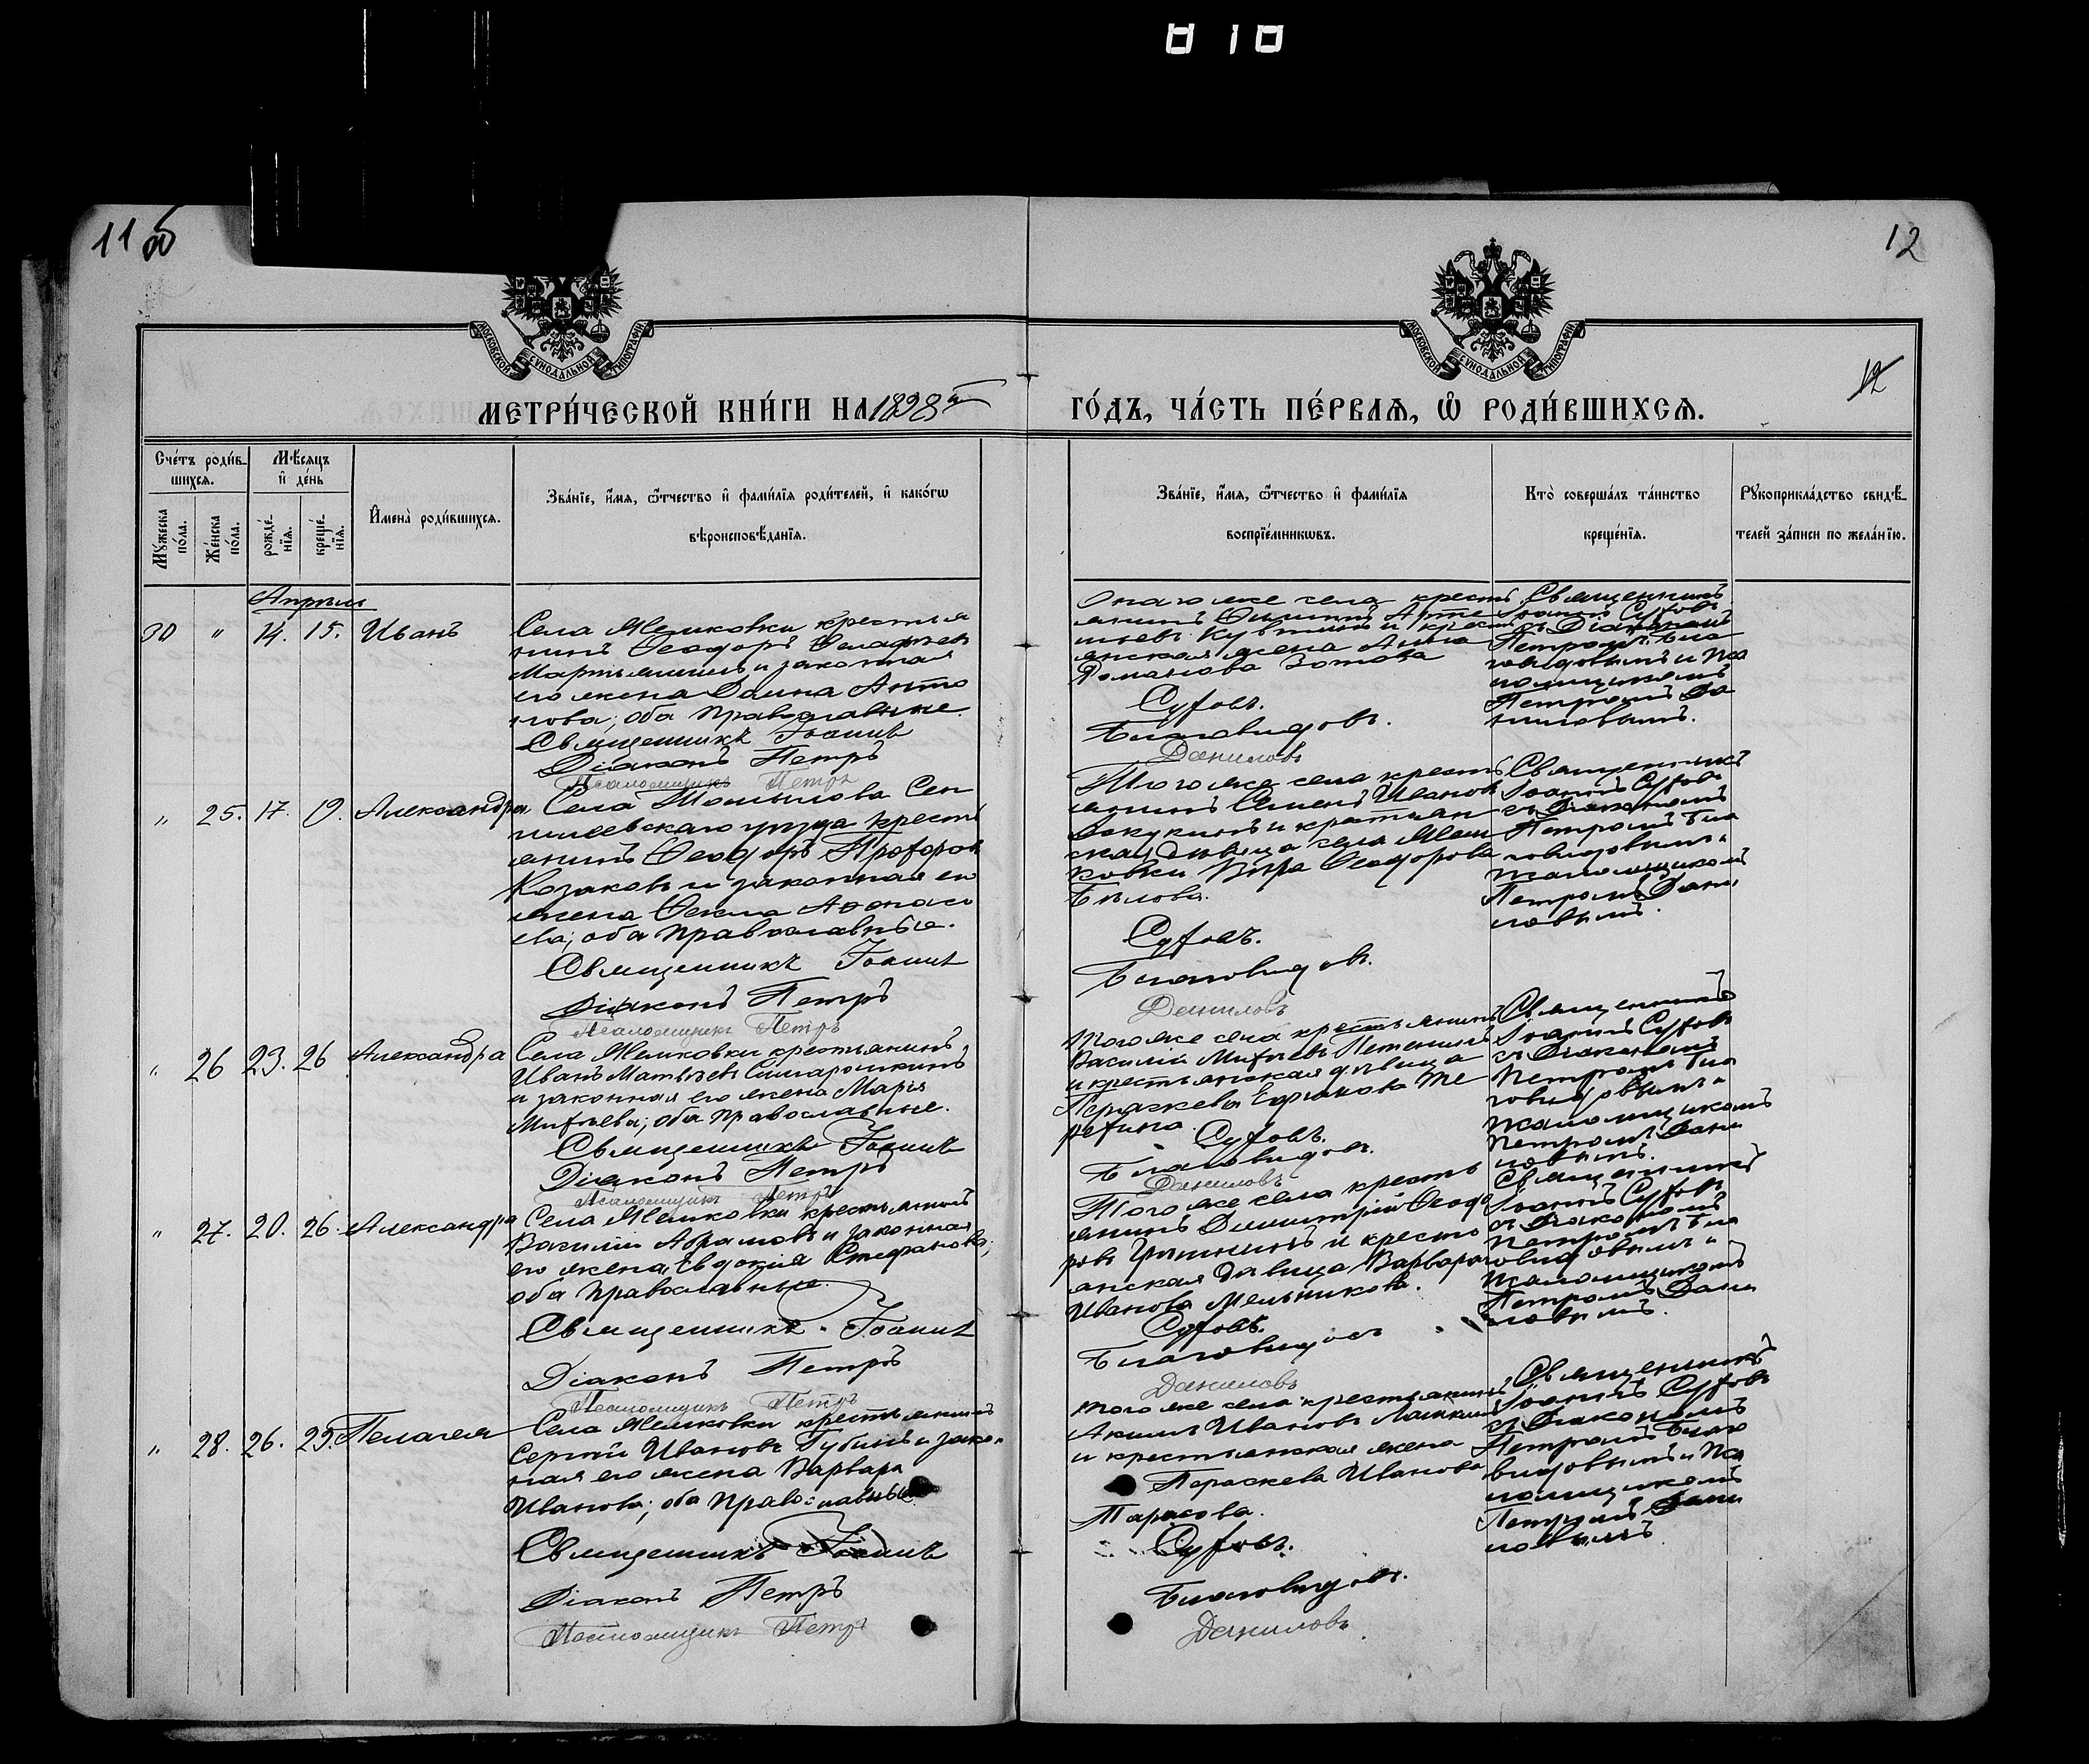 010
11 об
12
МОСКОВСКОЙ СѴНОДАЛЬНОЙ ТИПОГРАФІИ
МОСКОВСКОЙ СѴНОДАЛЬНОЙ ТИПОГРАФІИ
12
МЕТРИ́ЧЕСКОЙ КНИ́ГИ НА 1898 й
ГО́ДЪ, ЧА́СТЬ ПЕ́РВАѦ, Ѡ҆ РОДИ́ВШИХСѦ.
Сче́тъ роди́в-
шихсѧ.
Мꙋ́жеска по́ла.
Же́нска по́ла.
Мѣ́сѧцъ
и҆ де́нь
рожде́-
нїѧ.
креще́-
нїѧ.
И҆мена̀ роди́вшихсѧ.
Зва́нїе, и҆́мѧ, ѻ҆́тчество и҆ фами́лїѧ роди́телей, и҆ како́гѡ
вѣроисповѣ́данїѧ.
Зва́нїе, и҆́мѧ, ѻ҆́тчество и҆ фами́лїѧ
воспрїе́мникѡвъ.
Кто̀ соверша́лъ та́инство
креще́нїѧ.
Рꙋкоприкла́дство свидѣ́-
телей за́писи по жела́нїю.
Апрѣль
" 14. 15. Иванъ
Села Мешковки крестья
нинъ Ѳеодоръ
и законная
его жена Анто
нова; оба православные.
Священникъ Іоаннъ
Діаконъ Петръ
Псаломщикъ Петръ
Онаго же села крестъ
янинъ Арте
мьевъ и крестъ
янская жена Анна
Романова Зотова
Суховъ.
Благовидовъ.
Даниловъ
Священникъ
Іоаннъ Суховъ
съ Діакономъ
Петромъ Бла
говидовымъ и Пса
ломщикомъ
Петромъ Да
ниловымъ.
" 25. 17. 19. Александра
Села Сен
гилеевскаго уѣзда кресть
янинъ Ѳеодоръ Прохоровъ
Козаковъ и законная его
жена Ѳекла Аѳонась
ева; оба православные.
Священникъ Іоаннъ
Діаконъ Петръ
Псаломщикъ Петръ
Того же села кресть
янинъ Семенъ Ивановъ
и крестьян
ская дѣвица села Меш
ковки Вѣра Ѳеодорова
Бѣлова.
Суховъ.
Благовидовъ.
Даниловъ
Священникъ
Іоаннъ Суховъ
съ Діакономъ
Петромъ Бла
говидовымъ и
псаломщикомъ
Петромъ Дани
ловымъ.
" 26 23. 26 Александра
Села Мешковки крестьянинъ
Иванъ Матвѣевъ
и законная его жена Марія
Михѣева; оба православные.
Священникъ Іоаннъ
Діаконъ Петръ
Псаломщикъ Петръ
Того же села крестьянинъ
Василій Михѣевъ
и крестьянская дѣвица
Параскева Ефимова Те
рехина.
Суховъ.
Благовидовъ.
Даниловъ
Священникъ
Іоаннъ Суховъ
съ Діакономъ
Петромъ Бла
говидовымъ и
псаломщикомъ
Петромъ Дани
ловымъ.
" 27. 20. 26. Александра
Села Мешковки крестьянинъ
Василій Абрамовъ и законная
его жена Евдокія Стефанова;
оба православные.
Священникъ Іоаннъ
Діаконъ Петръ
Псаломщикъ Петръ
Того же села кресть
янинъ Димитрій Ѳеодо
ровъ и кресть
янская дѣвица Варвара
Иванова Мельникова.
Суховъ.
Благовидовъ
Даниловъ
Священникъ
Іоаннъ Суховъ
съ Діакономъ
Петромъ Бла
говидовымъ и
псаломщикомъ
Петромъ Дани
ловымъ.
" 28. 26. 29. Пелагея
Села Мешковки крестьянинъ
Сергѣй Ивановъ Губинъ и закон
ная его жена Варвара
Иванова; оба православные.
Священникъ Іоаннъ
Діаконъ Петръ
Псаломщикъ Петръ
Того же села крестьянинъ
Акимъ Ивановъ
и крестьянская жена
Параскева Иванова
Тарасова.
Суховъ.
Благовидовъ.
Даниловъ
Священникъ
Іоаннъ Суховъ
съ Діакономъ
Петромъ Благо
видовымъ и Пса
ломщикомъ
Петромъ Дани
ловымъ